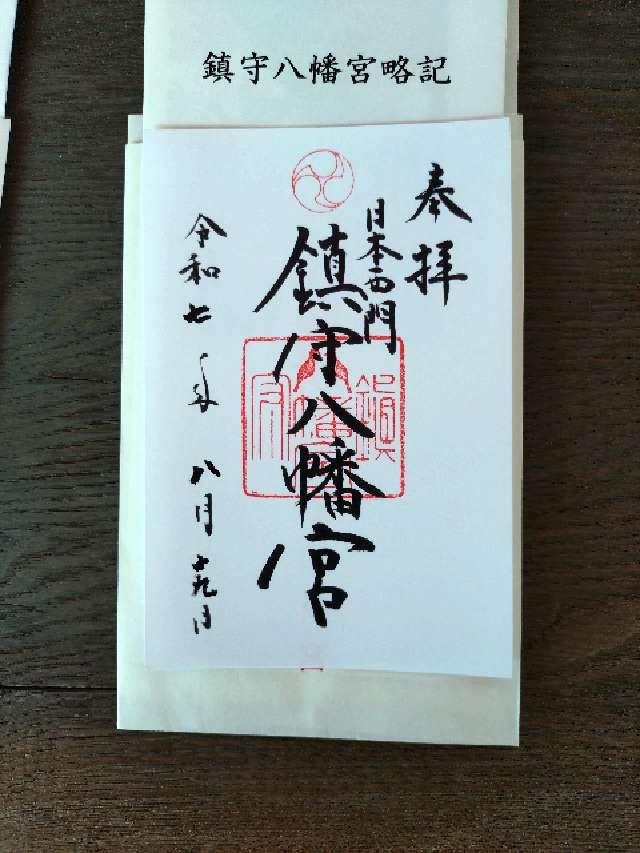 鎮守八幡宮略記
奉拝
日本西門
鎮守八幡宮
令和七年
八月十九日